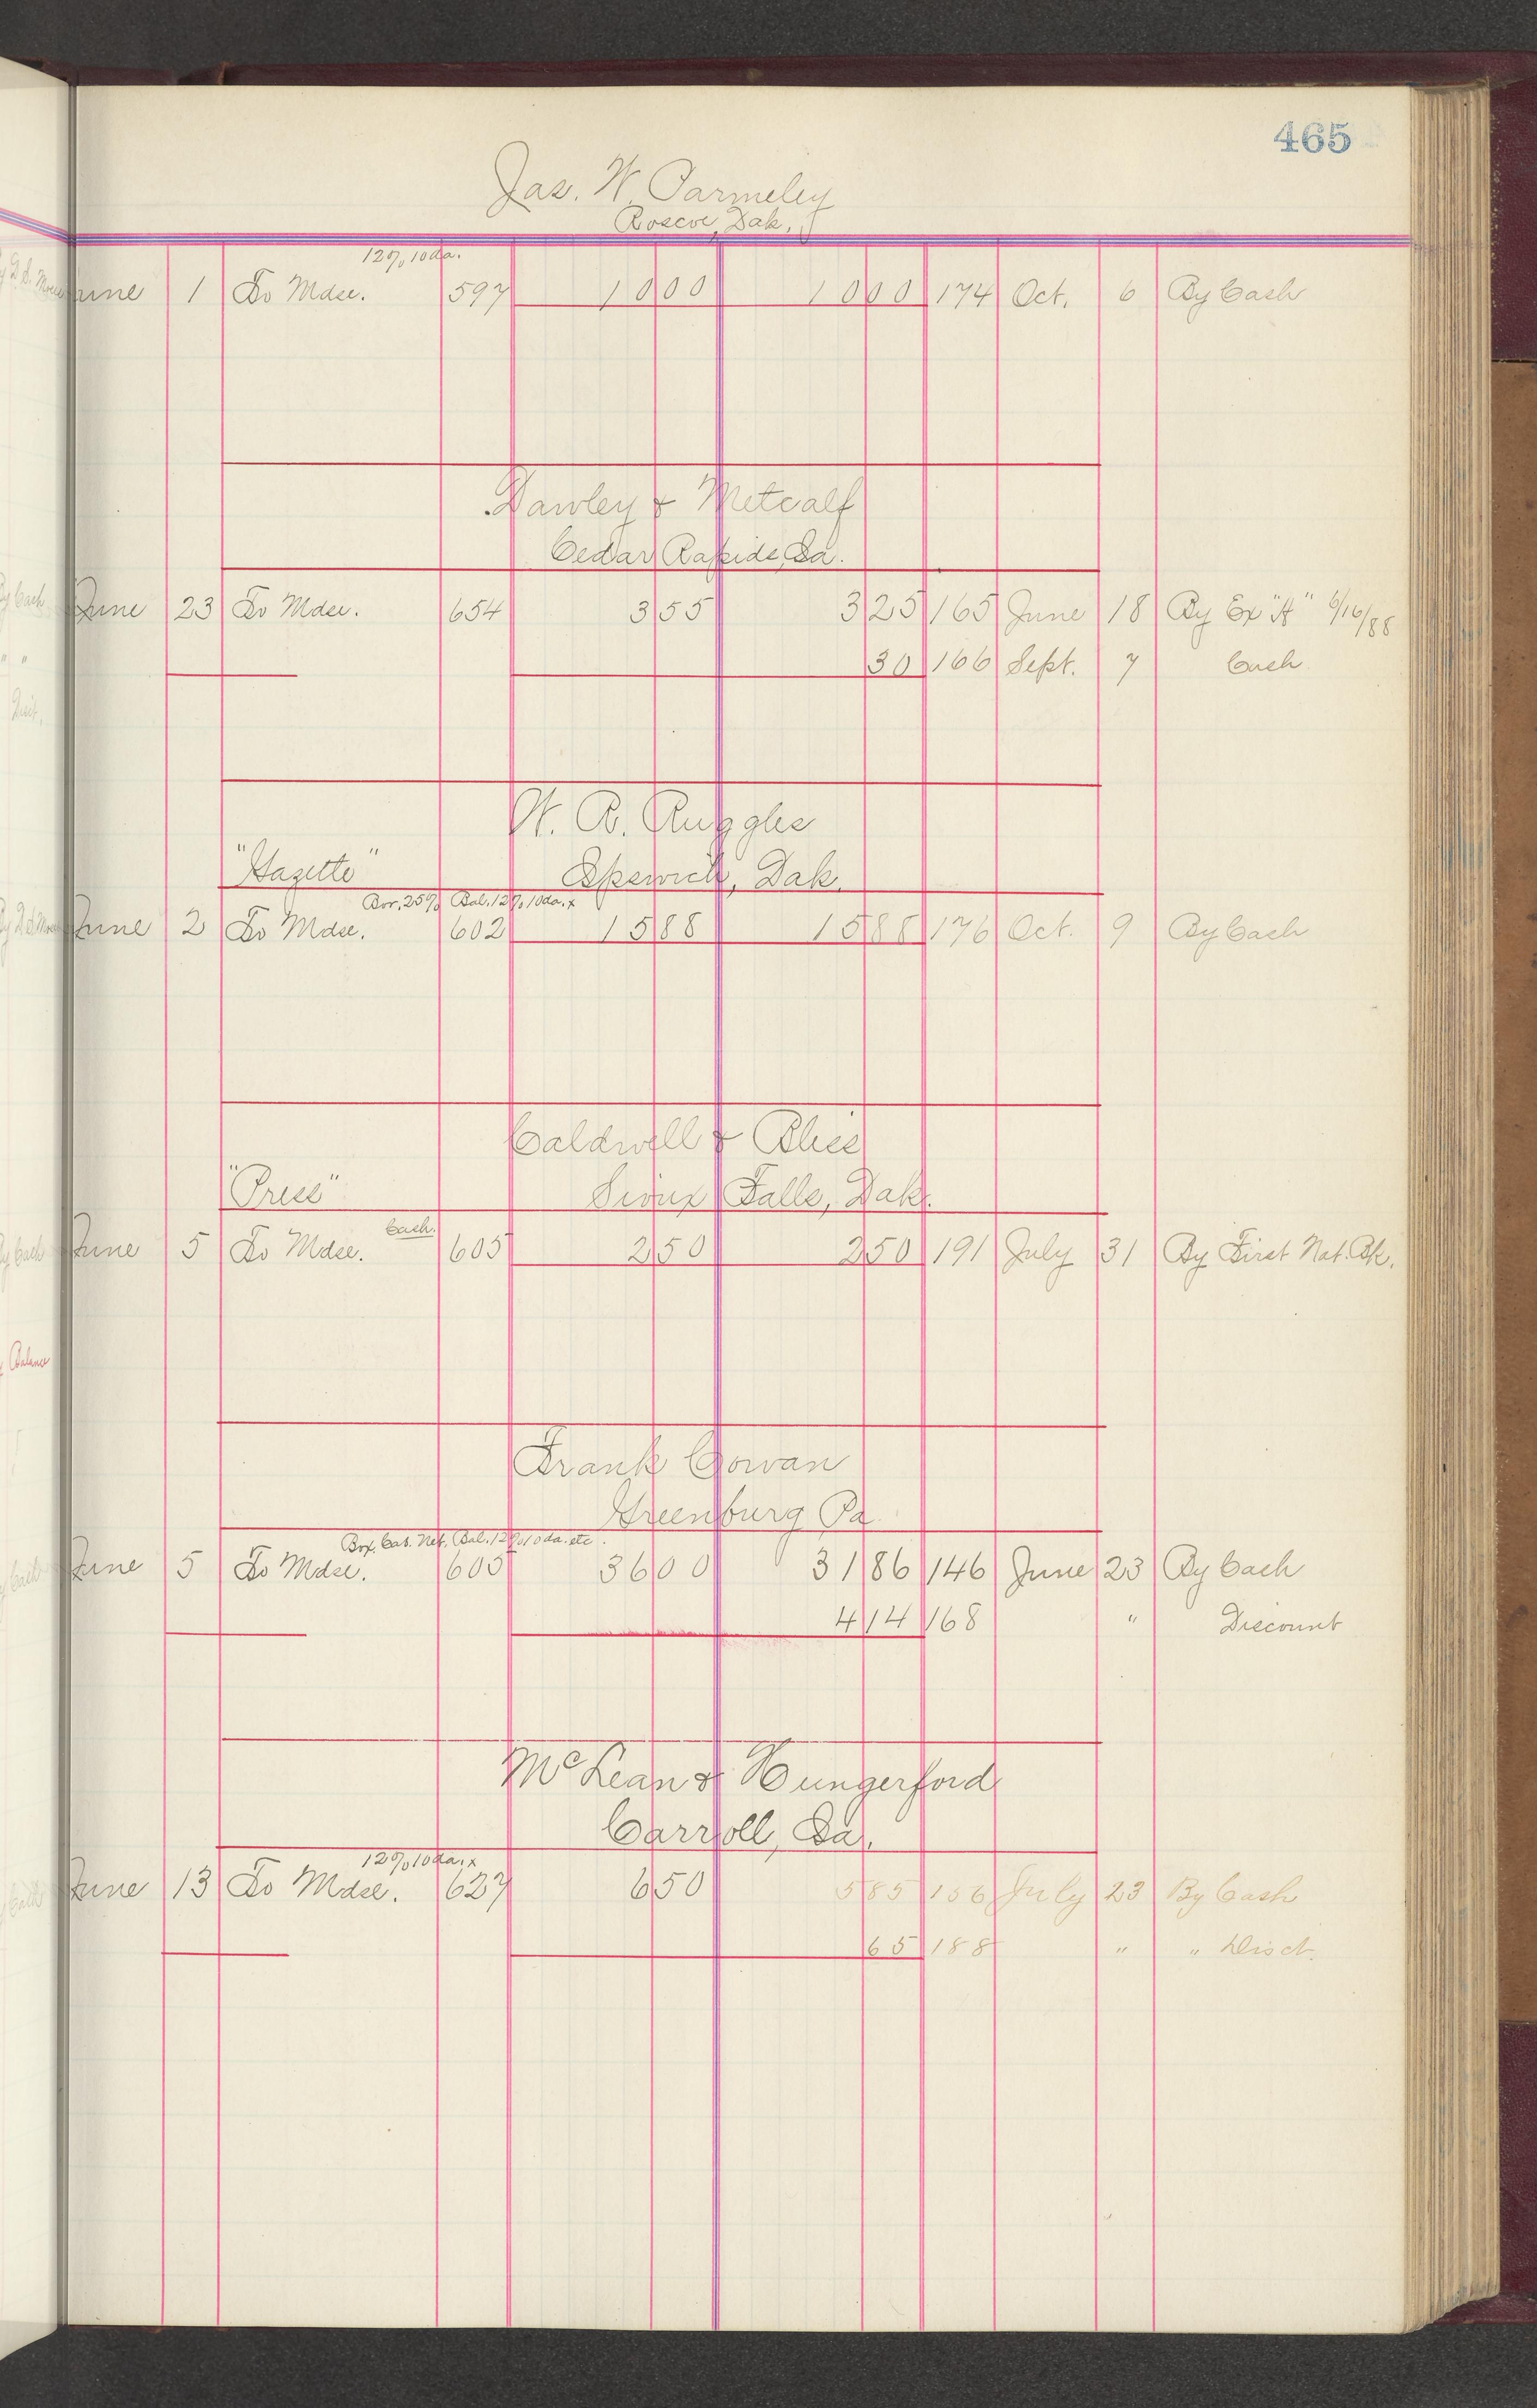 465
Jas. W. Parmeley
Roscoe, Dak.
12%10da.
June 1 To Mdse. 597 10 00 10 00 174 Oct. 6 By Cash
Dawley & Metcalf
Cedar Rapids, Ia.
June 23 To Mdse. 654 3 55 3 25 165 June 18 By Ex "A" 6/16/88
30 166 Sept. 7 Cash
W. R. Ruggles
"Gazette" Ipswich, Dak.
25% Bal. 12%10da. x
June 2 To Mdse. 602 15 88 15 88 176 Oct. 9 By Cash
Caldwell & Bliss
"Press" Sioux Falls, Dak.
Cash.
June 5 To Mdse. 605 2 50 2 50 191 July 31 By First Nat. Bk.
Frank Cowan
Greenburg Pa
Box, Cas. Net. Bal. 12%10da. etc.
June 5 To Mdse. 605 36 00 31 86 146 June 23 By Cash
4 14 168 " Discount
McLean & Hungerford
Carroll, Ia.
12%10da. x
June 13 To Mdse. 627 6 50 5 85 156 July 23 By Cash
65 188 " " Disct.